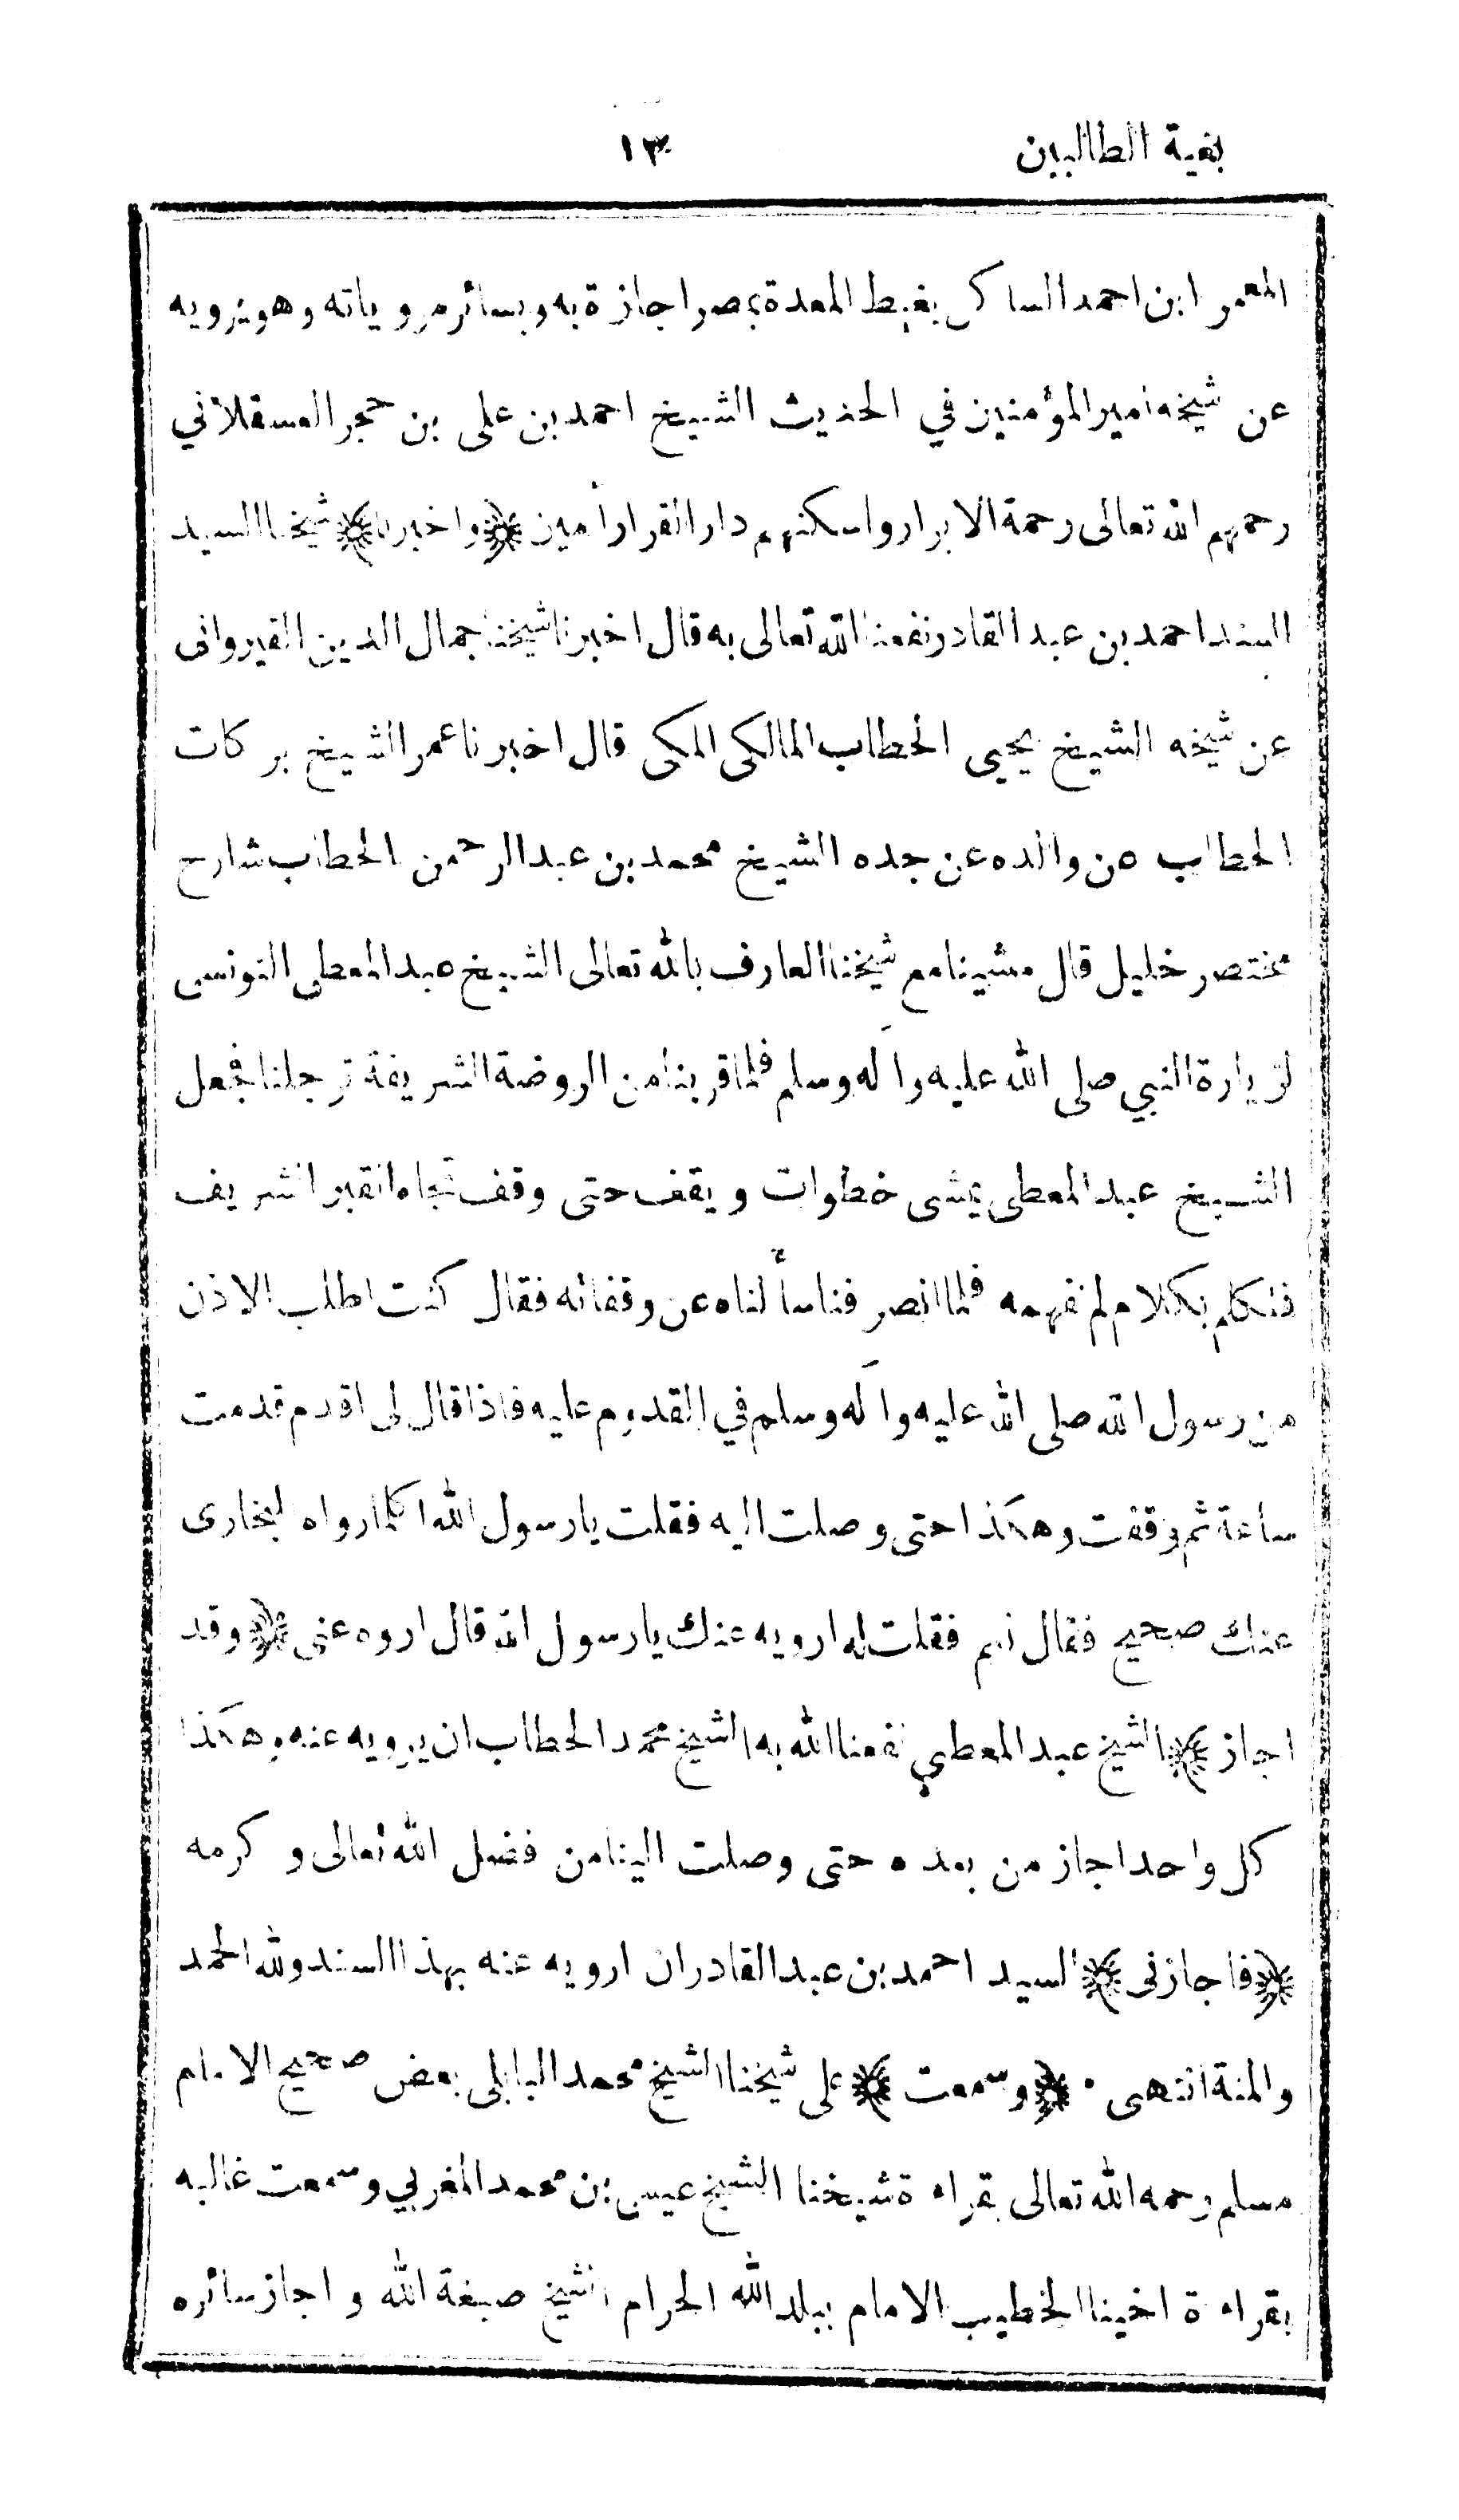 بغية الطالبين ١٣
المعمر ابن احمد الساكن بغيط المعدة بمصر اجازة به وبسائر مروياته وهو يرويه
عن شيخه امير المؤمنين في الحديث الشيخ احمد بن على بن حجر العسقلاني
رحمهم الله تعالى رحمة الابرار واسكنهم دار القرار أمين ﴿واخبرنا﴾ شيخنا السيد
السند احمد بن عبد القادر نفعنا الله تعالى به قال اخبرنا شيخنا جمال الدين القيروانى
عن شيخه الشيخ يحيى الحطاب المالكى المكى قال اخبرنا عمر الشيخ بركات
الحطاب عن والده عن جده الشيخ محمد بن عبد الرحمن الحطاب شارح
مختصر خليل قال مشينا مع شيخنا العارف بالله تعالى الشيخ عبد المعطى التونسى
لزيارة النبي صلى الله عليه وآله وسلم فلما قربنا من الروضة الشريفة ترجلنا فجعل
الشيخ عبد المعطى يمشى خطوات ويقف حتى وقف تجاه القبر الشريف
فتكلم بكلام لم نفهمه فلما انصرفنا سألناه عن وقفاته فقال كنت اطلب الاذن
من رسول الله صلى الله عليه وآله وسلم في القدوم عليه فاذا قال لى اقدم قدمت
ساعة ثم وقفت وهكذا حتى وصلت اليه فقلت يا رسول الله اكلما رواه البخارى
عنك صحيح فقال نعم فقلت له ارويه عنك يا رسول الله قال اروه عنى ﴿وقد
اجاز﴾ الشيخ عبد المعطي نفعنا الله به الشيخ محمد الحطاب ان يرويه عنه وهكذا
كل واحد اجاز من بعده حتى وصلت الينا من فضل الله تعالى وكرمه
﴿فاجازنى﴾ السيد احمد بن عبد القادر ان ارويه عنه بهذا السند ولله الحمد
والمنة انتهى • ﴿وسمعت﴾ على شيخنا الشيخ محمد البابلى بعض صحيح الامام
مسلم رحمه الله تعالى بقراءة شيخنا الشيخ عيسى بن محمد المغربي وسمعت غالبه
بقراءة اخينا الخطيب الامام ببلد الله الحرام الشيخ صبغة الله واجاز سائره